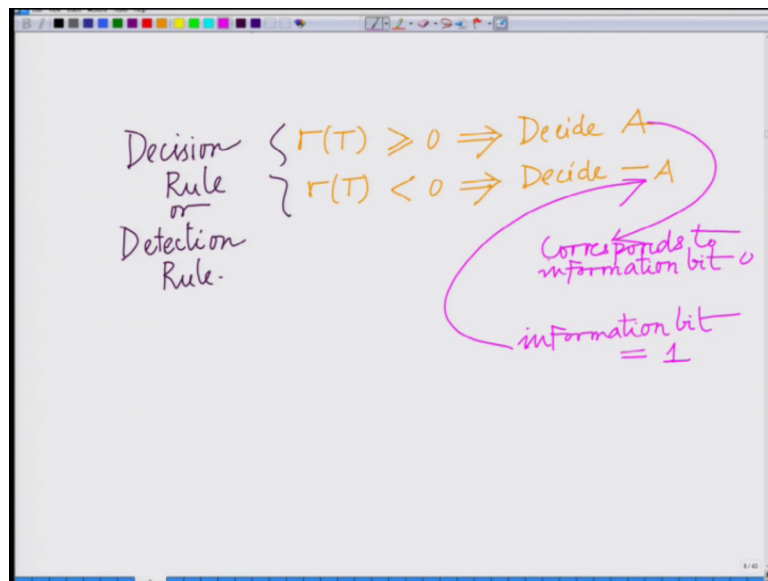 Decision
Rule
or
Detection
Rule.
{ r(T) ≥ 0 ⇒ Decide A
r(T) < 0 ⇒ Decide -A
Corresponds to
information bit 0
information bit
= 1
B I
8 / 43